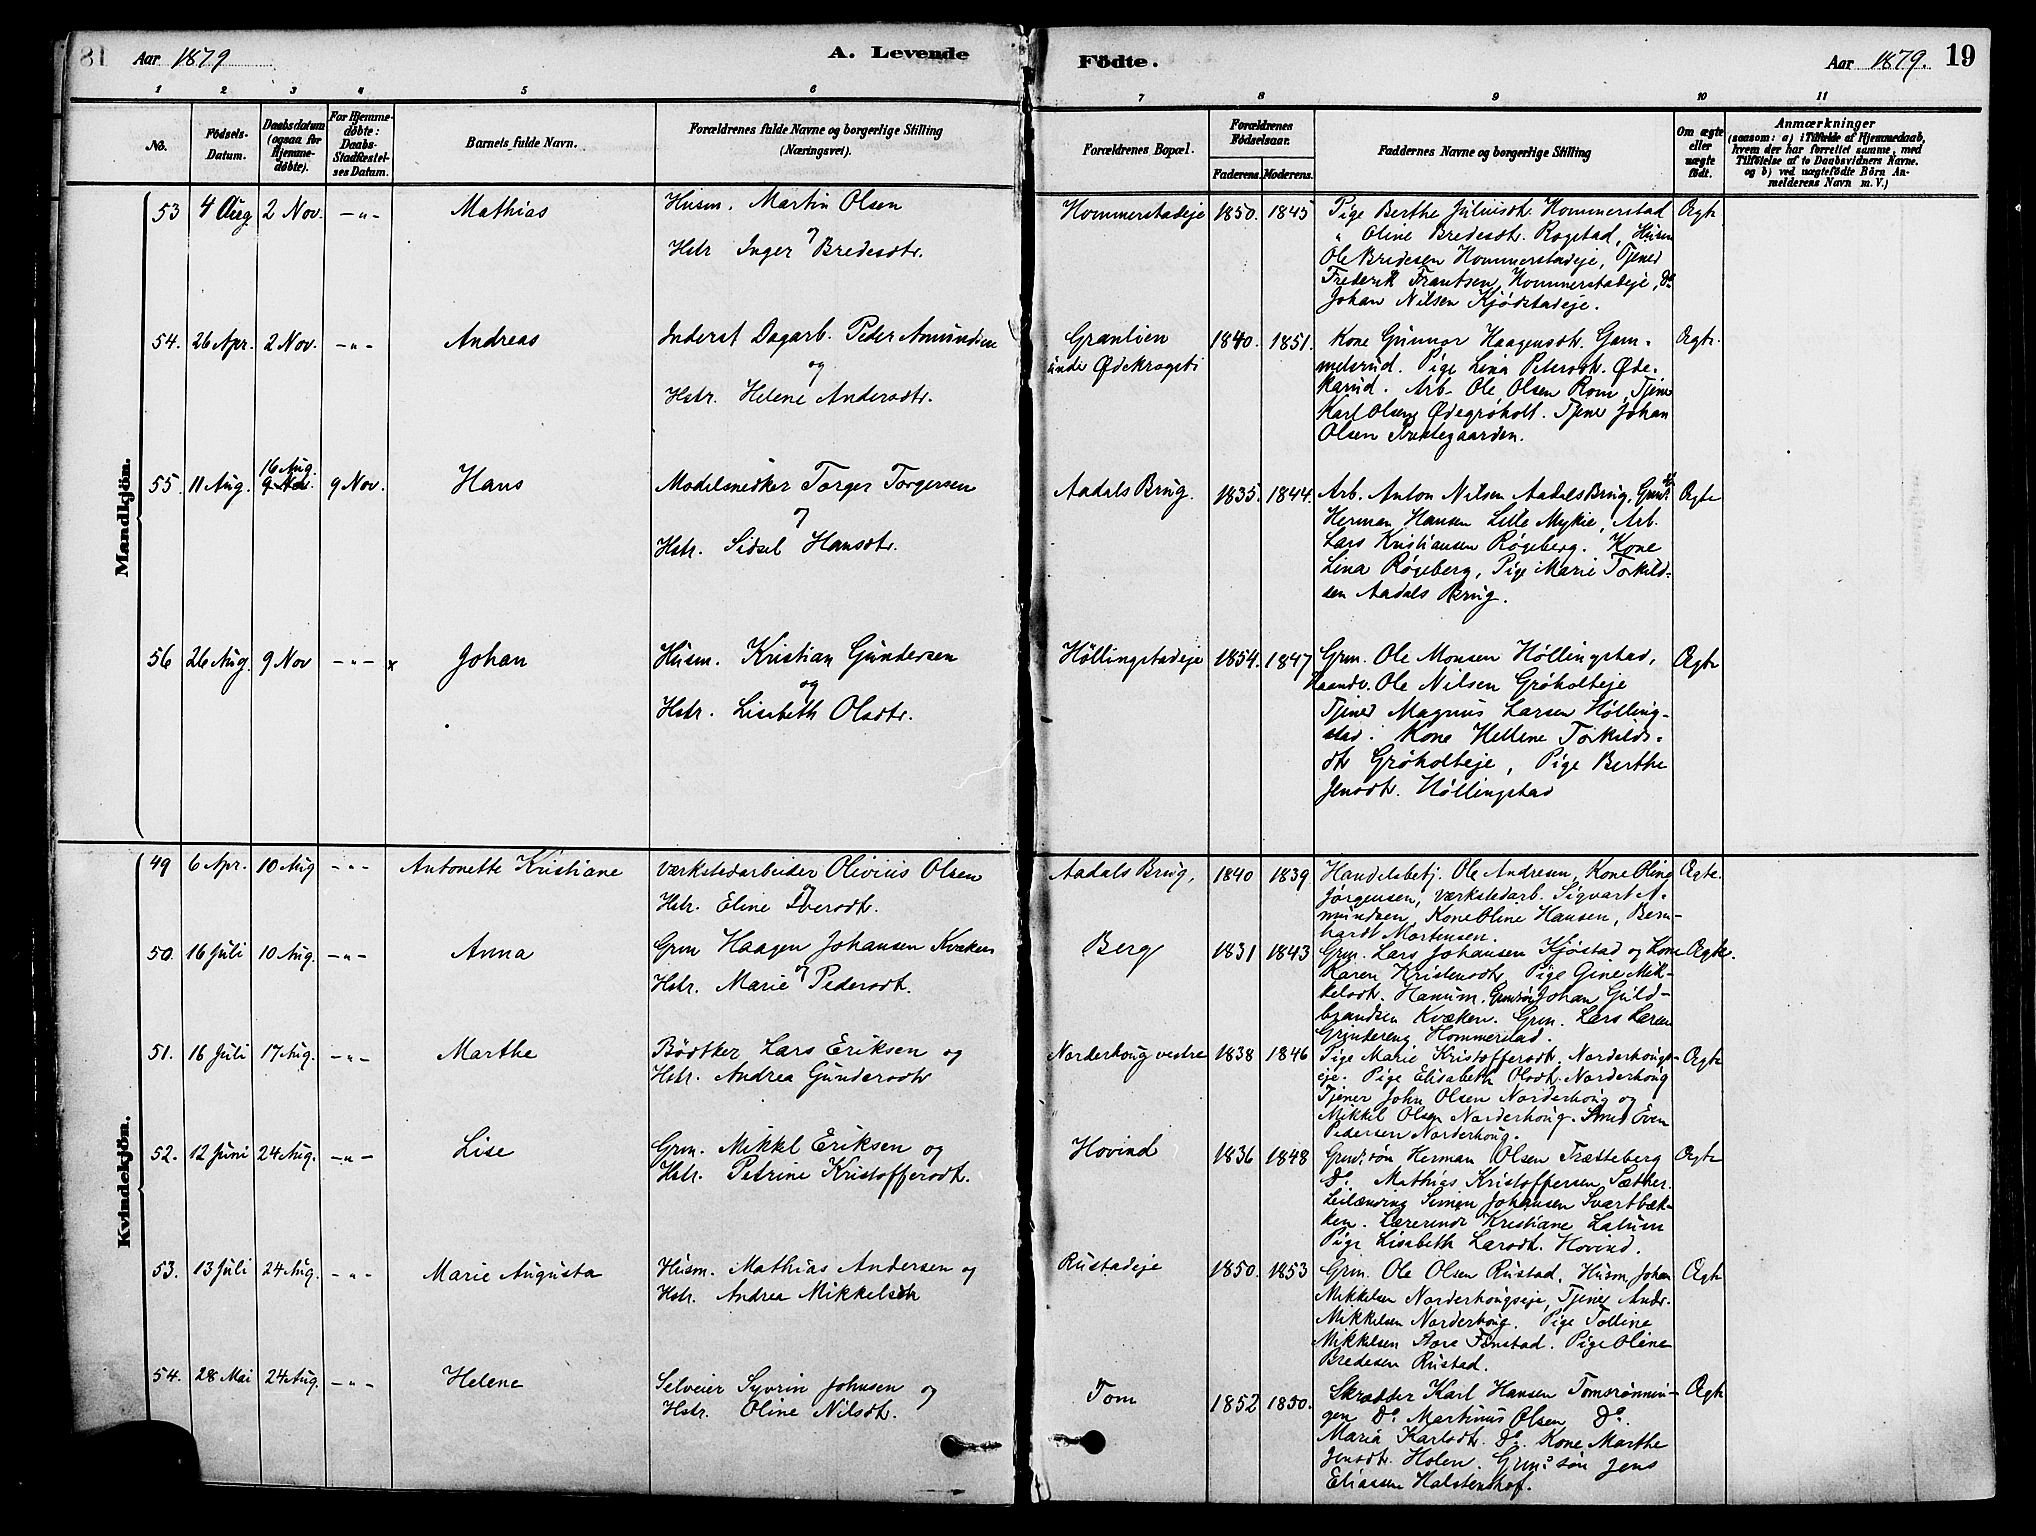 Aar 1879
A. Levende
1 2 3 4 5 6
No.
Fødsels-Datum.
Daabsdatum (ogsaa for Hjemmedøbte).
For Hjemmedøbte: Daabs-Stadfæstelses Datum.
Barnets fulde Navn.
Forældrenes fulde Navne og borgerlige Stilling
(Næringsvei).
Mandkjön.
53 4 Aug. 2 Nov. -"- Mathias Husm. Martin Olsen
og
Hstr Inger Bredesdtr.
54. 26 Apr. 2 Nov. -"- Andreas Inderst Dagarb. Peder Amundsen
og
Hstr. Helene Andersdtr.
16 Aug.
55. 11 Aug. 9 Nov. 9 Nov. Hans Modelsnedker Torger Torgersen
og
Hstr. Sidsel Hansdtr.
56 26 Aug. 9 Nov -"- x Johan Husm. Kristian Gundersen
og
Hstr. Lisebeth Olsdtr.
Kvindekjön.
49 6 Apr. 10 Aug -"- Antonette Kristiane Værkstedarbeider Olivius Olsen
og
Hstr. Eline Iversdtr.
50. 16 Juli 10 Aug. -"- Anna Grm Haagen Johansen Kvæken
og
Hstr. Marie Pedersdt.
51. 16 Juli 17 Aug. -"- Marthe Bødtker Lars Eriksen og
Hstr. Andrea Gundersdtr
52. 12 Juni 24 Aug. -"- Lise Grm. Mikkel Eriksen og
Hstr. Petrine Kristoffersdt.
53. 13 Juli 24 Aug. -"- Marie Augusta Husm. Mathias Andersen og
Hstr. Andrea Mikkelsdtr
54. 28 Mai 24 Aug. -"- Helene Selveier Syvrin Johnsen og
Hstr. Oline Nilsdt.
Födte.
Aar 1879. 19
7 8 9 10 11
Forældrenes Bopæl.
Forældrenes Fødselsaar.
Faderens. Moderens.
Faddernes Navne og borgerlige Stilling
Om ægte eller uægte født.
Anmærkninger
(saasom: a) i Tilfælde af Hjemmedaab,
hvem der har forrettet samme, med
Tilføielse af to Daabsvidners Navne.
og b) ved uægtefødte Börn An-
melderens Navn m. V.)
Hommerstadeje 1850. 1845 Pige Berthe Juliusdt. Hommerstad Ægte
" Oline Bredesdtr. Rogstad, Husm
Ole Bredesen Hommerstadeje, Tjener
Frederik Frantsen, Hommerstadeje, Do
Johan Nilsen Kjødstadeje.
Granlien 1840. 1851. Kone Gunnor Haagensdtr. Gam- Ægte.
under Ødekrogsti
melsrud. Pige Lina Petersdt. Øde-
karud. Arb. Ole Olsen Rom, Tjener
Karl Olsen Ødegrøholt. Tjener Johan
Olsen Præstegaarden.
Aadals Brug. 1835. 1844. Arb. Anton Nilsen Aadals Brug, Grmds. Ægte
Herman Hansen Lille Mykje, Arb.
Lars Kristiansen Røgeberg. Kone
Lina Røgeberg, Pige Marie Torkild-
sen Aadals Brug.
Høllingstadeje 1854. 1847 Grm. Ole Monsen Høllingstad, Ægte
Haandv. Ole Nilsen Grøholteje
Tjener Magnus Larsen Hølling-
stad. Kone Hellene Torkilds-
dt Grøholteje, Pige Berthe
Jensdt. Høllingstad
Aadals Brug, 1840 1839 Handelsbetj. Ole Andresen, Kone Oline Ægte.
Jørgensen, Værkstedarb. Sigvart A-
mundsen, Kone Oline Hansen, Bern-
hardt Mortensen.
Berg 1831 1843 Grm. Lars Johansen Kjøstad og Kone Ægte.
Karen Kristensdt. Pige Gine Mik-
kelsdt. Hanum. Grmdsøn Johan Guld-
brandsen Kvæken. Grm. Lars Larsen
Grindereng Hommerstad.
Norderhoug vestre 1838 1846 Pige Marie Kristoffersdt. Norderhougs- Ægte
eje. Pige Elisabeth Olsdt. Norderhoug
Tjener John Olsen Norderhoug og
Mikkel Olsen Norderhoug. Smed Even
Pedersen Norderhoug.
Hovind 1836 1848 Grmdsøn Herman Olsen Trætteberg Ægte
Do. Mathias Kristoffersen Sæther.
Leilænding Simen Johansen Svartbæk-
ken. Lærerinde Kristiane Lalum
Pige Lisebeth Larsdt. Hovind.
Rustadeje 1850. 1853 Grm. Ole Olsen Rustad, Husm Johan Ægte
Mikkelsen Norderhougseje, Tjener Andr.
Mikkelsen Norderhoug. Pige Tolline
Mikkelsen Store Finstad. Pige Oline
Bredesen Rustad.
Tom 1852 1850. Skrædder Karl Hansen Tomsrønnin- Ægte
gen Do. Martinus Olsen Do.
Maria Karlsdt. Do. Kone Marthe
Jensdt. Holen. Grm.søn Jens
Eliassen Halstenshof.